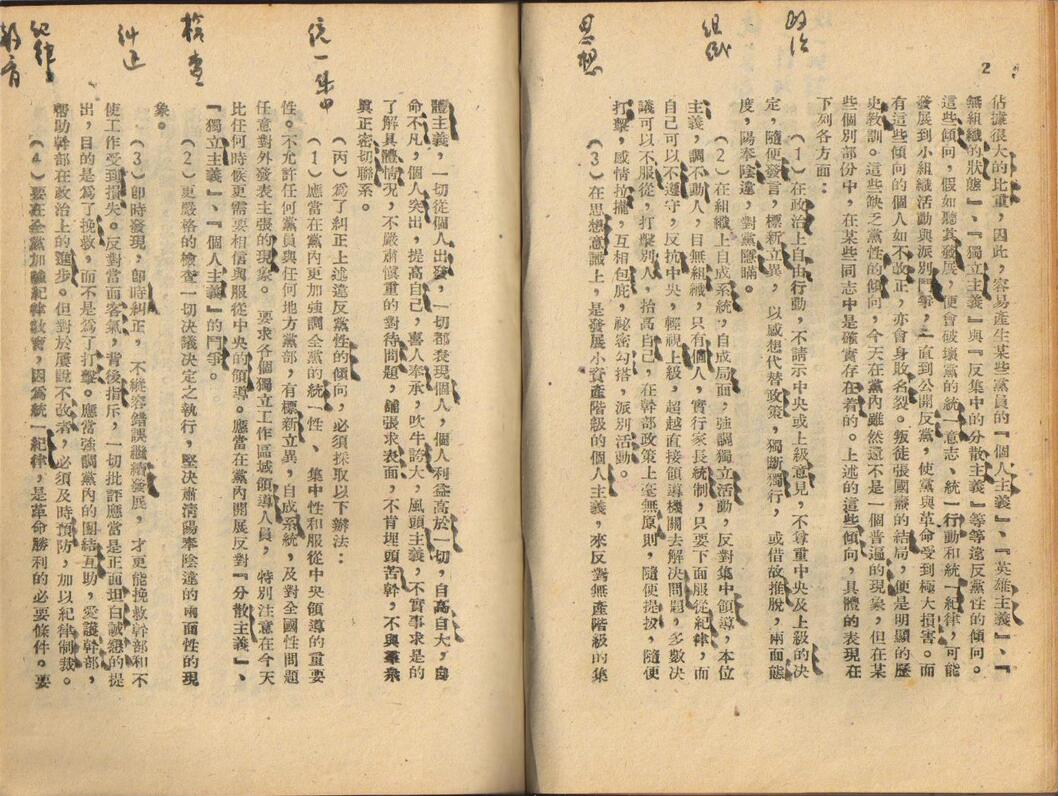 2
政治
組織
思想
佔據很大的比重，因此，容易產生某些黨員的『個人主義』、『英雄主義』、『
無組織的狀態』、『獨立主義』與『反集中的分散主義』等等違反黨性的傾向。
這些傾向，假如聽其發展，便會破壞黨的統一意志、統一行動和統一紀律，可能
發展到小組織活動與派別鬥爭，一直到公開反黨，使黨與革命受到極大損害。而
有這些傾向的個人如不改正，亦會身敗名裂。叛徒張國燾的結局，便是明顯的歷
史教訓。這些缺乏黨性的傾向，今天在黨內雖然還不是一個普遍的現象，但在某
些個別部份中，在某些同志中是確實存在着的。上述的這些傾向，具體的表現在
下列各方面：
（1）在政治上自由行動，不請示中央或上級意見，不尊重中央及上級的決
定，隨便發言，標新立異，以感想代替政策，獨斷獨行，或借故推脫，兩面態
度，陽奉陰違，對黨隱瞞。
（2）在組織上自成系統，自成局面，強調獨立活動，反對集中領導，本位
主義，調不動人，目無組織，只有個人，實行家長統制，只要下面服從紀律，而
自己可以不遵守，反抗中央，輕視上級，超越直接領導機關去解決問題，多數決
議可以不服從，打擊別人，抬高自己，在幹部政策上毫無原則，隨便提拔，隨便
打擊，感情拉攏，互相包庇，祕密勾搭，派別活動。
（3）在思想意識上，是發展小資產階級的個人主義，來反對無產階級的集
統一集中
檢查
糾正
紀律
教育
體主義，一切從個人出發，一切都表現個人，個人利益高於一切，自高自大，自
命不凡，個人突出，提高自己，喜人奉承，吹牛誇大，風頭主義，不實事求是的
了解具體情況，不嚴肅慎重的對待問題，鋪張求表面，不肯埋頭苦幹，不與羣衆
眞正密切聯系。
（丙）爲了糾正上述違反黨性的傾向，必須採取以下辦法：
（1）應當在黨內更加強調全黨的統一性、集中性和服從中央領導的重要
性。不允許任何黨員與任何地方黨部，有標新立異，自成系統，及對全國性問題
任意對外發表主張的現象。要求各個獨立工作區域領導人員，特別注意在今天
比任何時候更需要相信與服從中央的領導。應當在黨內開展反對『分散主義』、
『獨立主義』、『個人主義』的鬥爭。
（2）更嚴格的檢查一切決議決定之執行，堅決肅清陽奉陰違的兩面性的現
象。
（3）卽時發現，卽時糾正，不縱容錯誤繼續發展，才更能挽救幹部和不
使工作受到損失。反對當面客氣，背後指斥，一切批評應當是正面坦白誠懇的提
出，目的是爲了挽救，而不是爲了打擊。應當強調黨內的團結互助，愛護幹部，
幫助幹部在政治上的進步。但對於屢說不改者，必須及時預防，加以紀律制裁。
（4）要在全黨加強紀律教育，因爲統一紀律，是革命勝利的必要條件。要